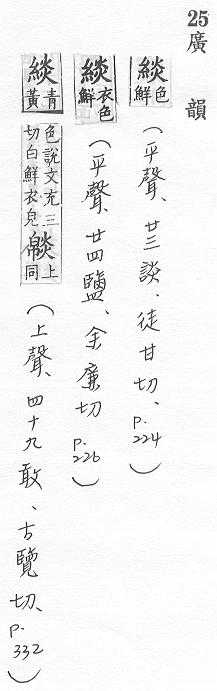 25 廣韻
緂色鮮(平聲、廿三談、徒甘切、p.224)
緂衣色鮮(平聲、廿四鹽、余廉切 p.226)
緂青黃色說文充三切白鮮衣皃 上同(上聲、四十九敢、古覽切、p.332)